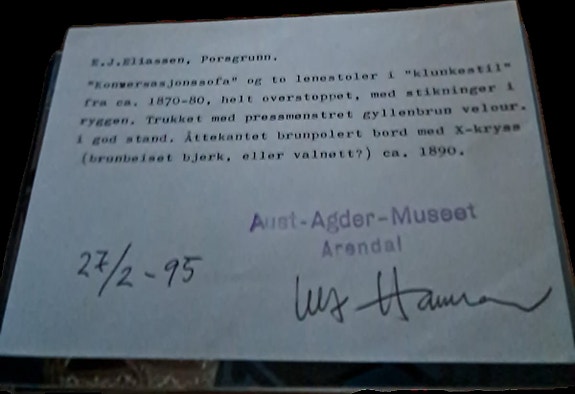 E.J.Eliassen, Porsgrunn.
"Konversasjonssofa" og to lenestoler i "klunkestil"
fra ca. 1870-80, helt overstoppet, med stikninger i
ryggen. Trukket med pressmønstret gyllenbrun velour.
i god stand. Åttekantet brunpolert bord med X-kryss
(brunbeiset bjerk, eller valnøtt?) ca. 1890.
Aust-Agder-Museet
Arendal
27/2-95